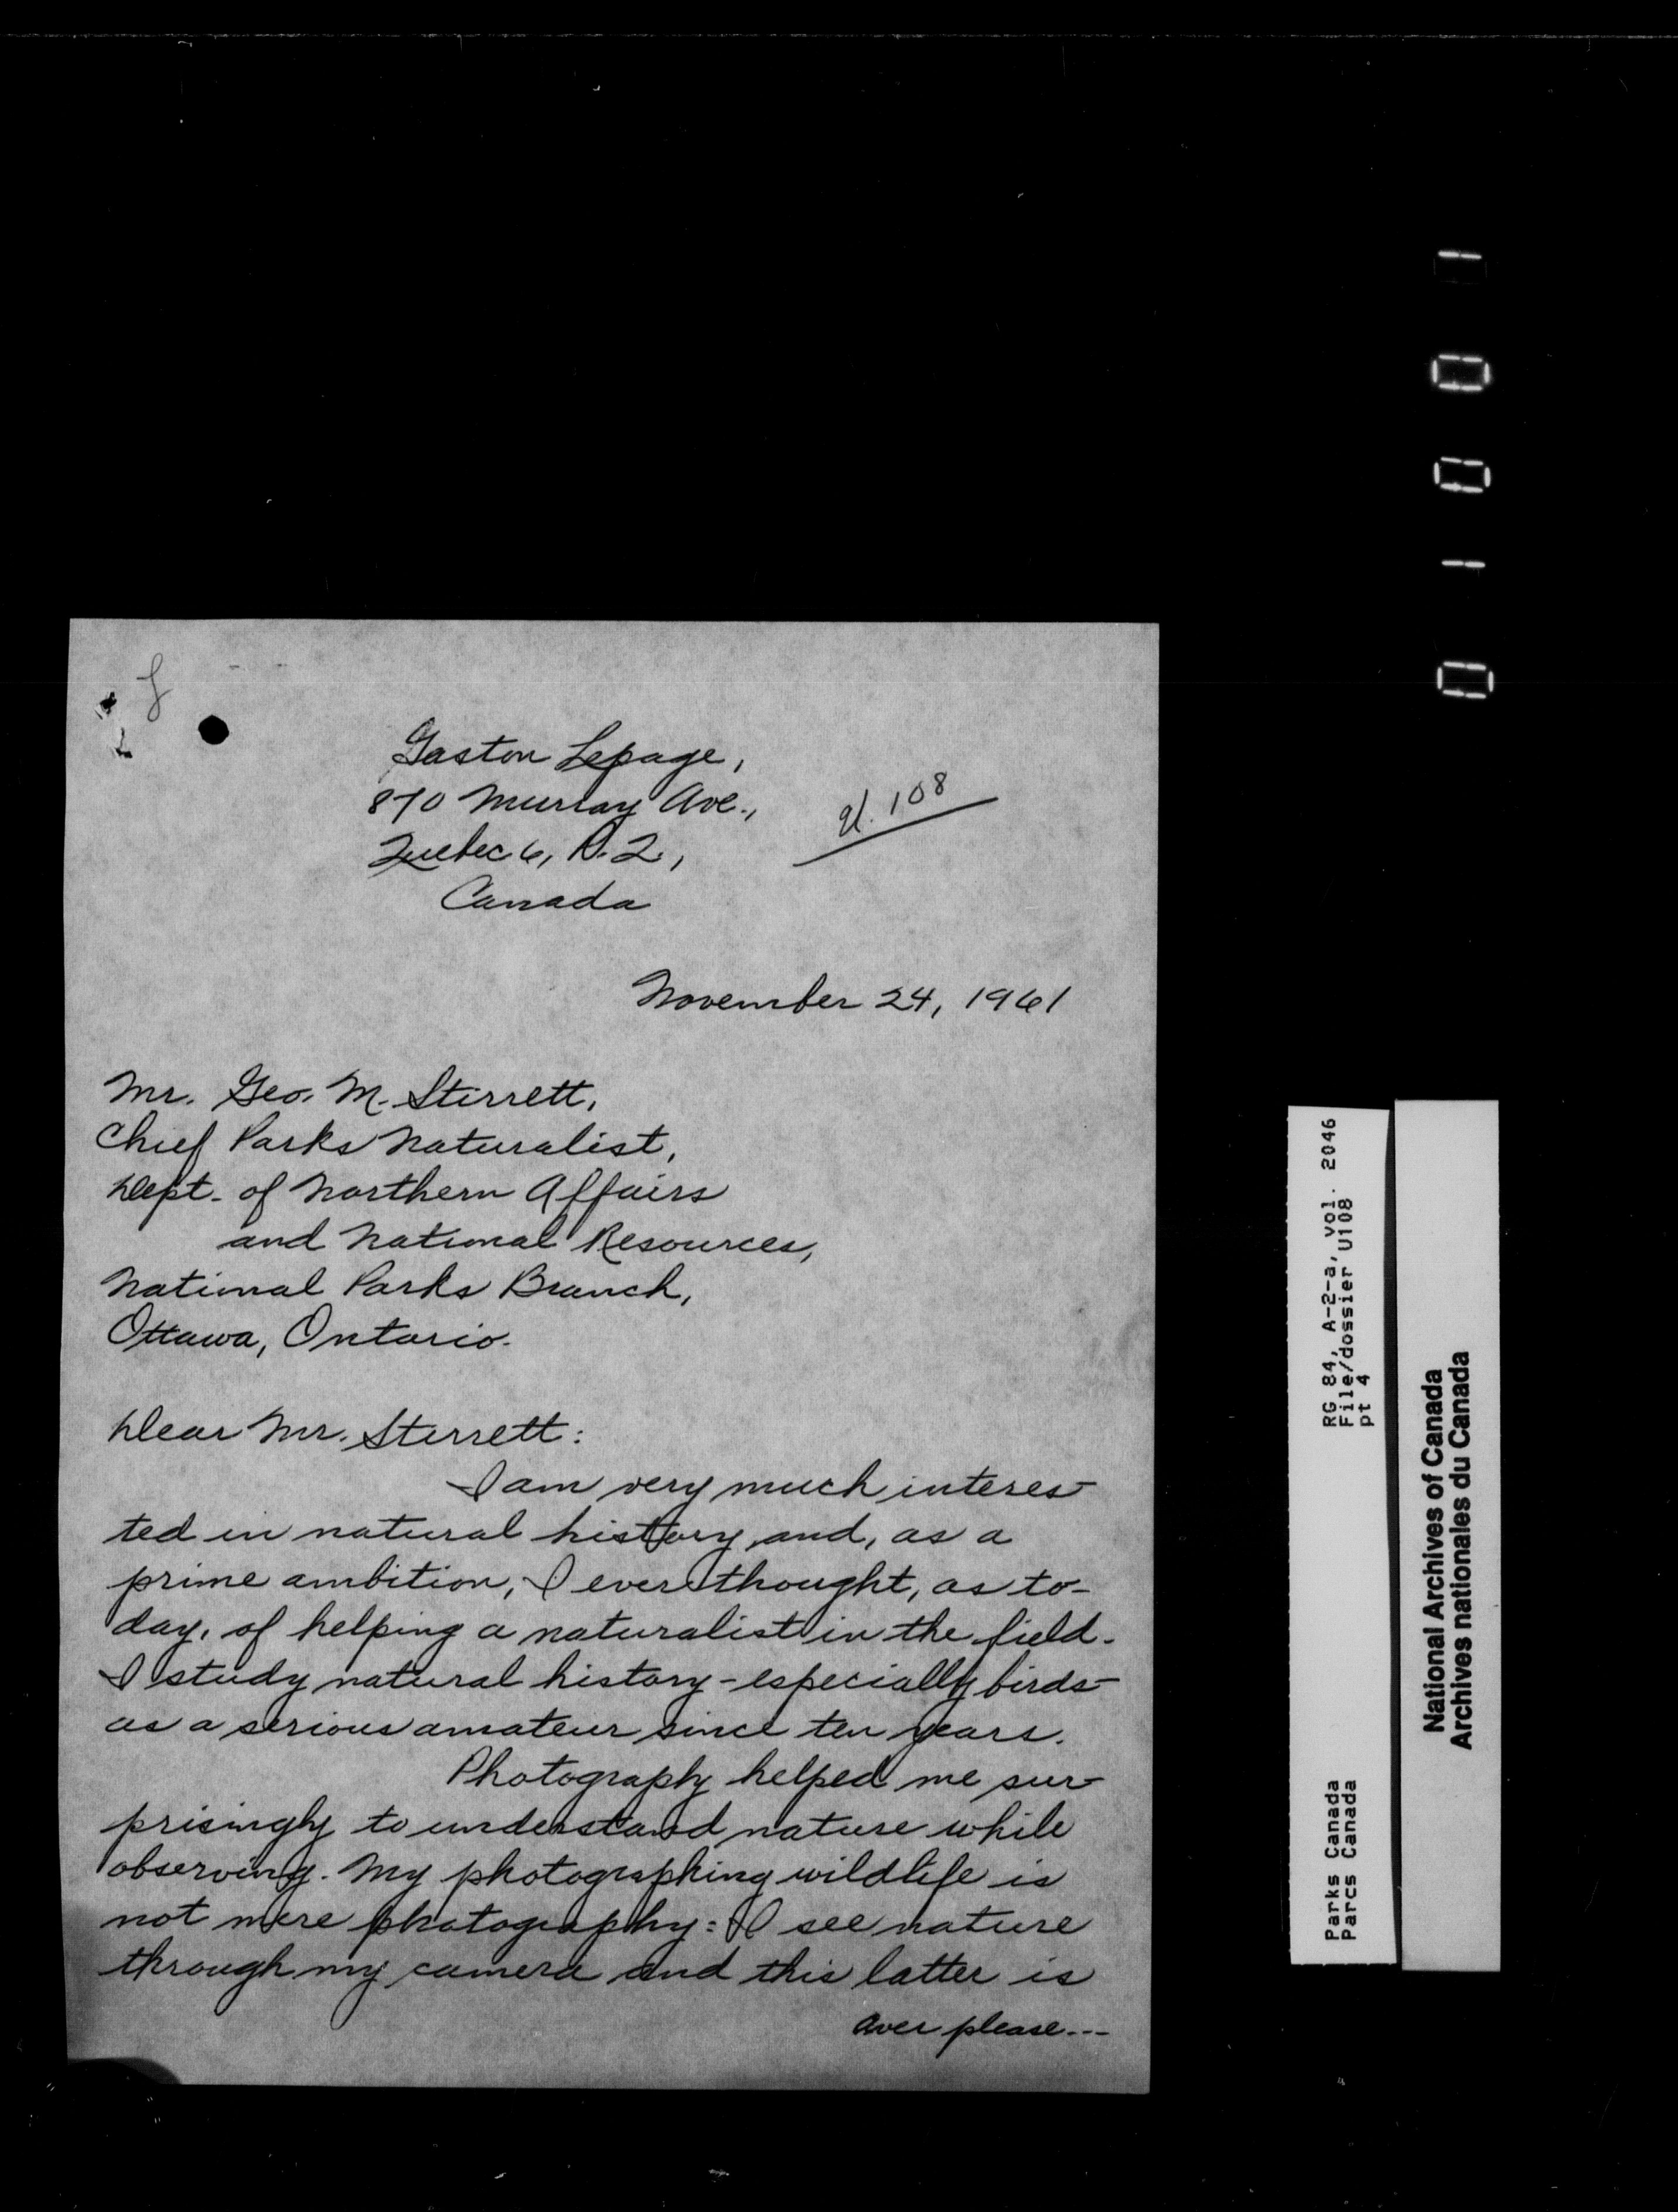 Gaston Lepage,
870 Murray Ave.,
Quebec 6, P.Q.,
Canada
U. 108
November 24, 1961
Mr. Geo. M. Stirrett,
Chief Parks Naturalist,
Dept. of Northern Affairs
and National Resources,
National Parks Branch,
Ottawa, Ontario.
Dear Mr. Stirrett:
I am very much interes-
ted in natural history and, as a
prime ambition, I ever thought, as to-
day, of helping a naturalist in the field.
I study natural history - especially birds -
as a serious amateur since ten years.
Photography helped me sur-
prisingly to understand nature while
observing. My photographing wildlife is
not mere photography: I see nature
through my camera and this latter is
over please---
RG 84, A-2-a, vol. 2046
File/dossier U108
pt 4
Parks Canada
Parcs Canada
National Archives of Canada
Archives nationales du Canada
01001